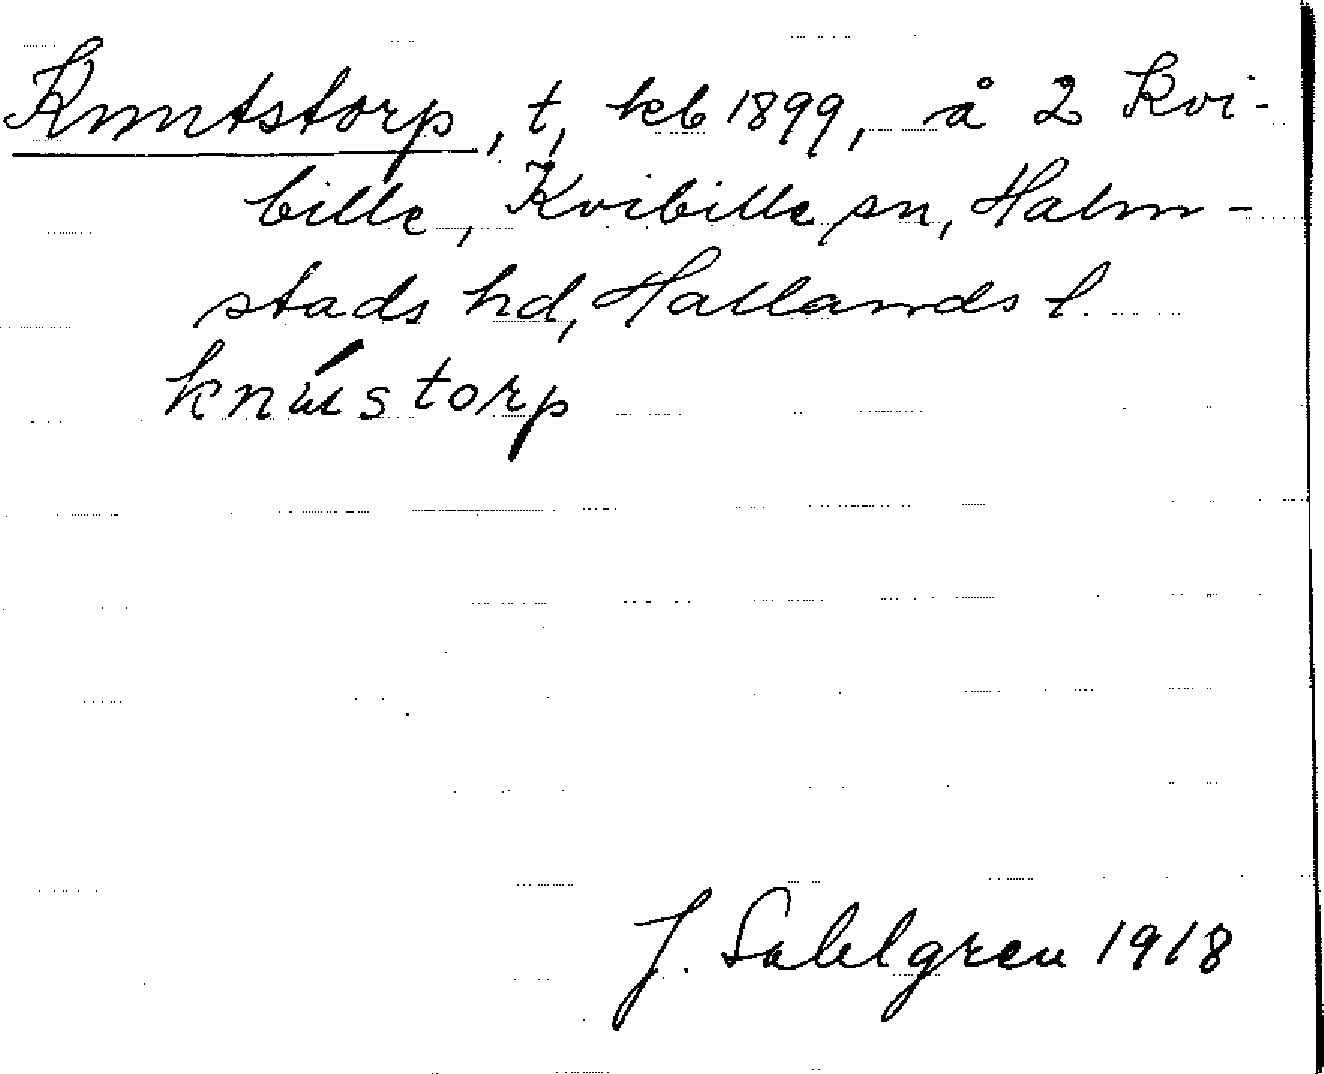 Knutstorp, t, kb 1899, å 2 Kvi-
bille, Kvibille sn, Halm-
stads hd, Hallands l.
knústorp
J. Sahlgren 1918